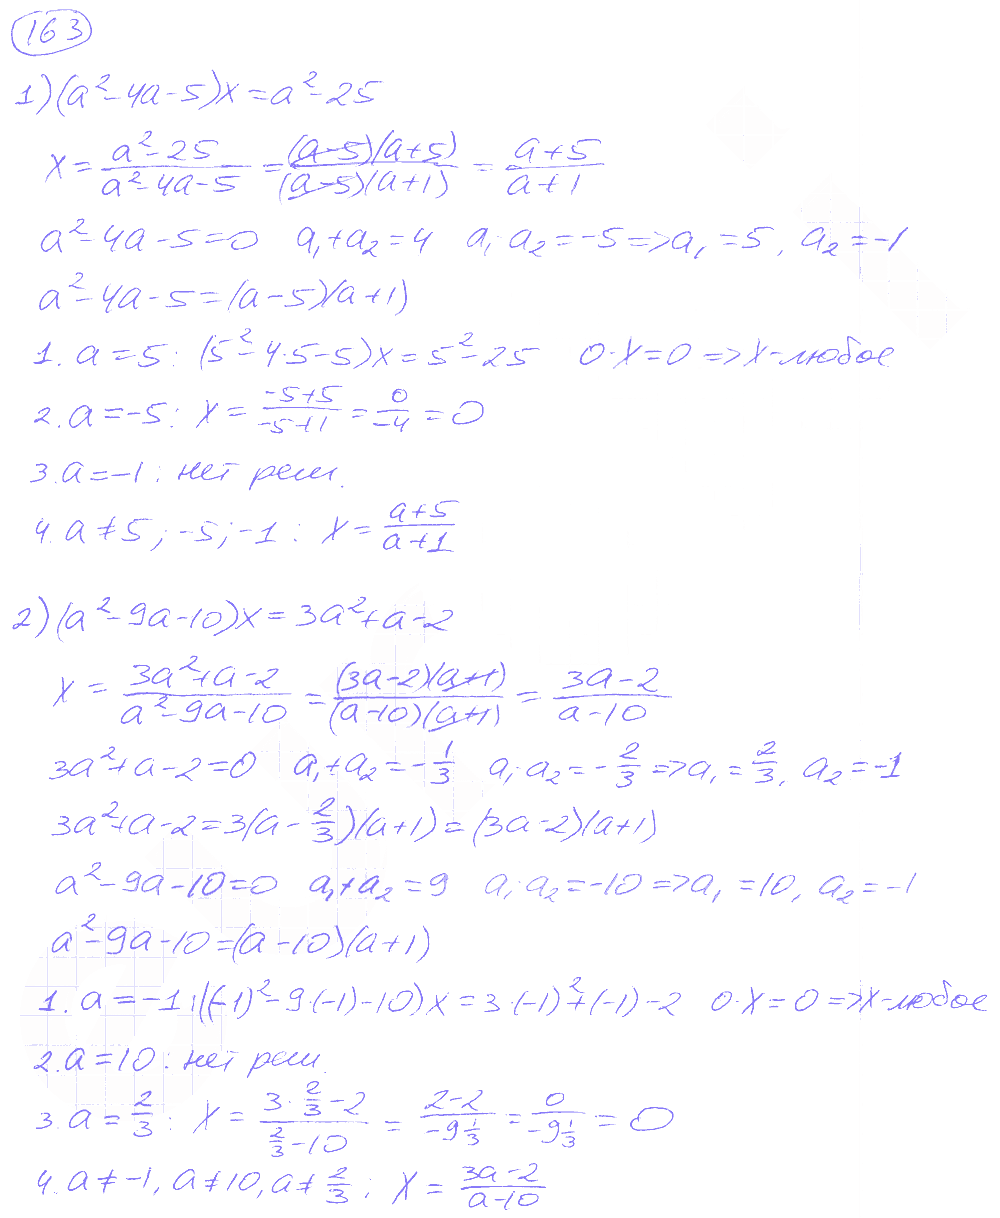 163
1) (a² - 4a - 5)x = a² - 25
x = (a² - 25)/(a² - 4a - 5) = ((a - 5)(a + 5))/((a - 5)(a + 1)) = (a + 5)/(a + 1)
a² - 4a - 5 = 0 a₁ + a₂ = 4 a₁ · a₂ = -5 => a₁ = 5, a₂ = -1
a² - 4a - 5 = (a - 5)(a + 1)
1. a = 5: (5² - 4·5 - 5)x = 5² - 25 0·x = 0 => x - любое
2. a = -5: x = (-5 + 5)/(-5 + 1) = 0/(-4) = 0
3. a = -1: нет реш.
4. a ≠ 5; -5; -1: x = (a + 5)/(a + 1)
2) (a² - 9a - 10)x = 3a² + a - 2
x = (3a² + a - 2)/(a² - 9a - 10) = ((3a - 2)(a + 1))/((a - 10)(a + 1)) = (3a - 2)/(a - 10)
3a² + a - 2 = 0 a₁ + a₂ = -1/3 a₁ · a₂ = -2/3 => a₁ = 2/3, a₂ = -1
3a² + a - 2 = 3(a - 2/3)(a + 1) = (3a - 2)(a + 1)
a² - 9a - 10 = 0 a₁ + a₂ = 9 a₁ · a₂ = -10 => a₁ = 10, a₂ = -1
a² - 9a - 10 = (a - 10)(a + 1)
1. a = -1: ((-1)² - 9·(-1) - 10)x = 3·(-1)² + (-1) - 2 0·x = 0 => x - любое
2. a = 10: нет реш.
3. a = 2/3: x = (3 · 2/3 - 2)/(2/3 - 10) = (2 - 2)/(-9 1/3) = 0/(-9 1/3) = 0
4. a ≠ -1, a ≠ 10, a ≠ 2/3: x = (3a - 2)/(a - 10)